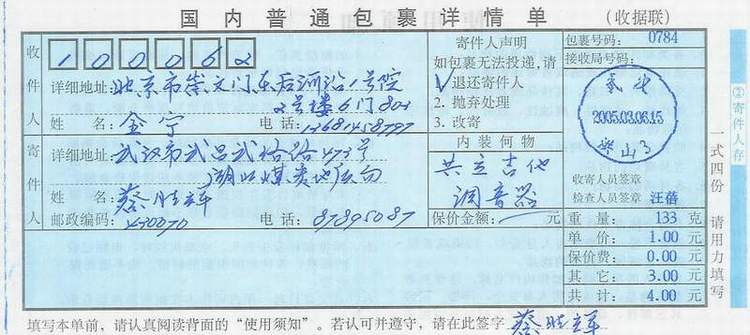 国内普通包裹详情单 (收据联)
收件人
100062
详细地址:北京市崇文门东后河沿1号院
2号楼6门803
姓 名:金宁 电话:13681458797
寄件人
详细地址:武汉市武昌武珞路473号
湖北煤炭地质局
蔡胜辉
邮政编码:430070 电 话:87895087
寄件人声明
如包裹无法投递,请
√1.退还寄件人
2.抛弃处理
3.改寄
内装何物
共立吉他
调音器
保价金额: 元
包裹号码: 0784
接收局号码:
2005.03.06.15
收寄人员签章
检查人员签章 汪蓓
重 量: 133 克
单 价: 1.00 元
保价费: 0.00 元
其 它: 3.00 元
共 计: 4.00 元
②寄件人存
一式四份 请用力填写
填写本单前,请认真阅读背面的“使用须知”。若认可并遵守,请在此签字 蔡胜辉